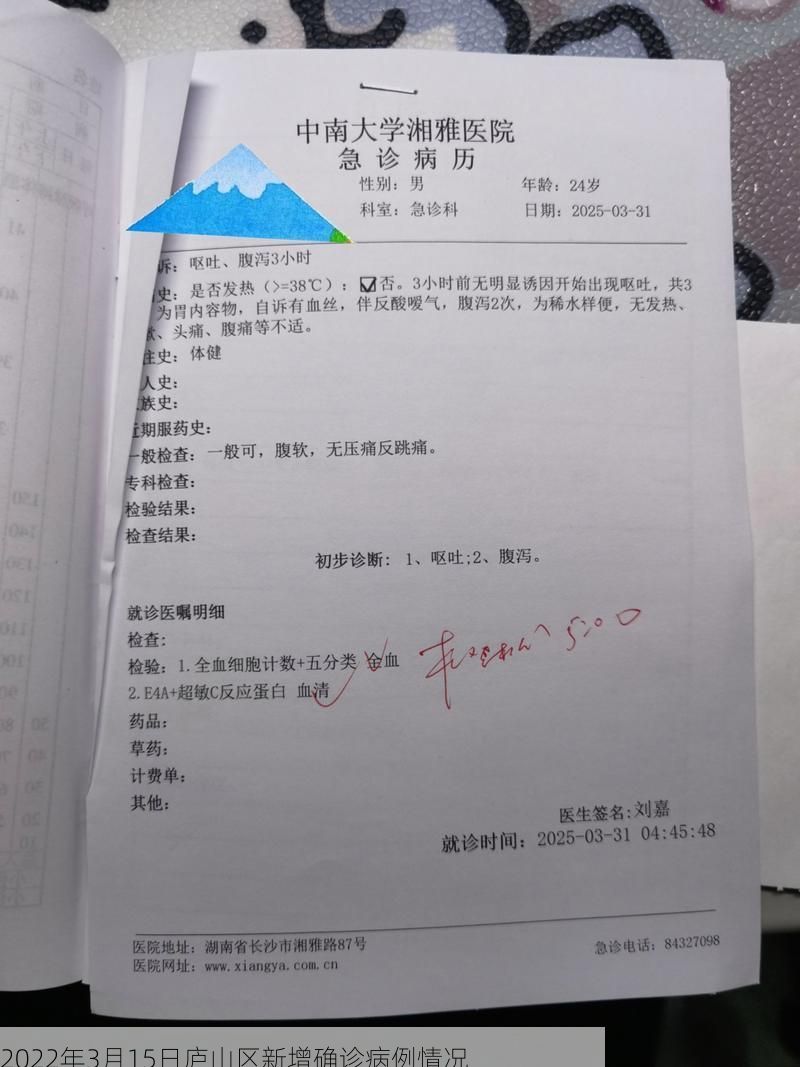 中南大学湘雅医院
急诊病历
性别：男 年龄：24岁
科室：急诊科 日期：2025-03-31
诉：呕吐、腹泻3小时
史：是否发热（>=38℃）：☑否。3小时前无明显诱因开始出现呕吐，共3
为胃内容物，自诉有血丝，伴反酸嗳气，腹泻2次，为稀水样便，无发热、
、头痛、腹痛等不适。
往史：体健
人史：
族史：
近期服药史：
一般检查：一般可，腹软，无压痛反跳痛。
专科检查：
检验结果：
检查结果：
初步诊断：1、呕吐;2、腹泻。
就诊医嘱明细
检查：
检验：1.全血细胞计数+五分类 全血
5:00
2.E4A+超敏C反应蛋白 血清
药品：
草药：
计费单：
其他：
医生签名:刘嘉
就诊时间：2025-03-31 04:45:48
医院地址：湖南省长沙市湘雅路87号 急诊电话：84327098
医院网址：www.xiangya.com.cn
2022年3月15日庐山区新增确诊病例情况